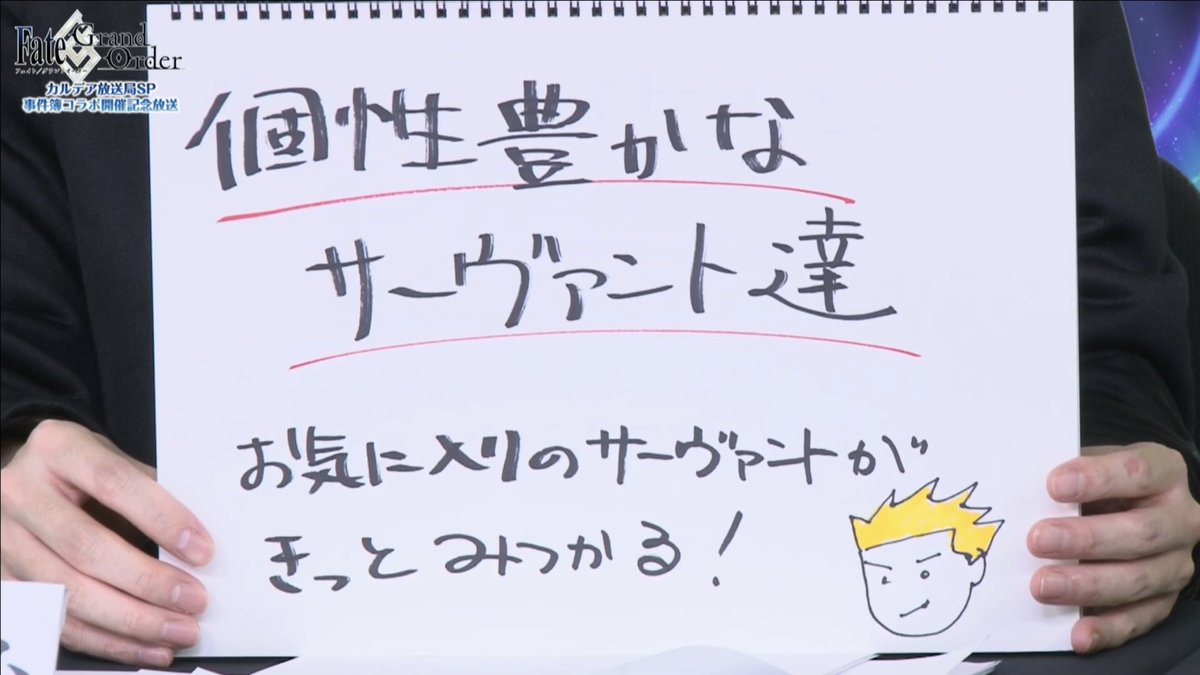 Fate
Grand
Order
フェイト/グランドオーダー
カルデア放送局SP
事件簿コラボ開催記念放送
個性豊かな
サーヴァント達
お気に入りのサーヴァントが
きっとみつかる!